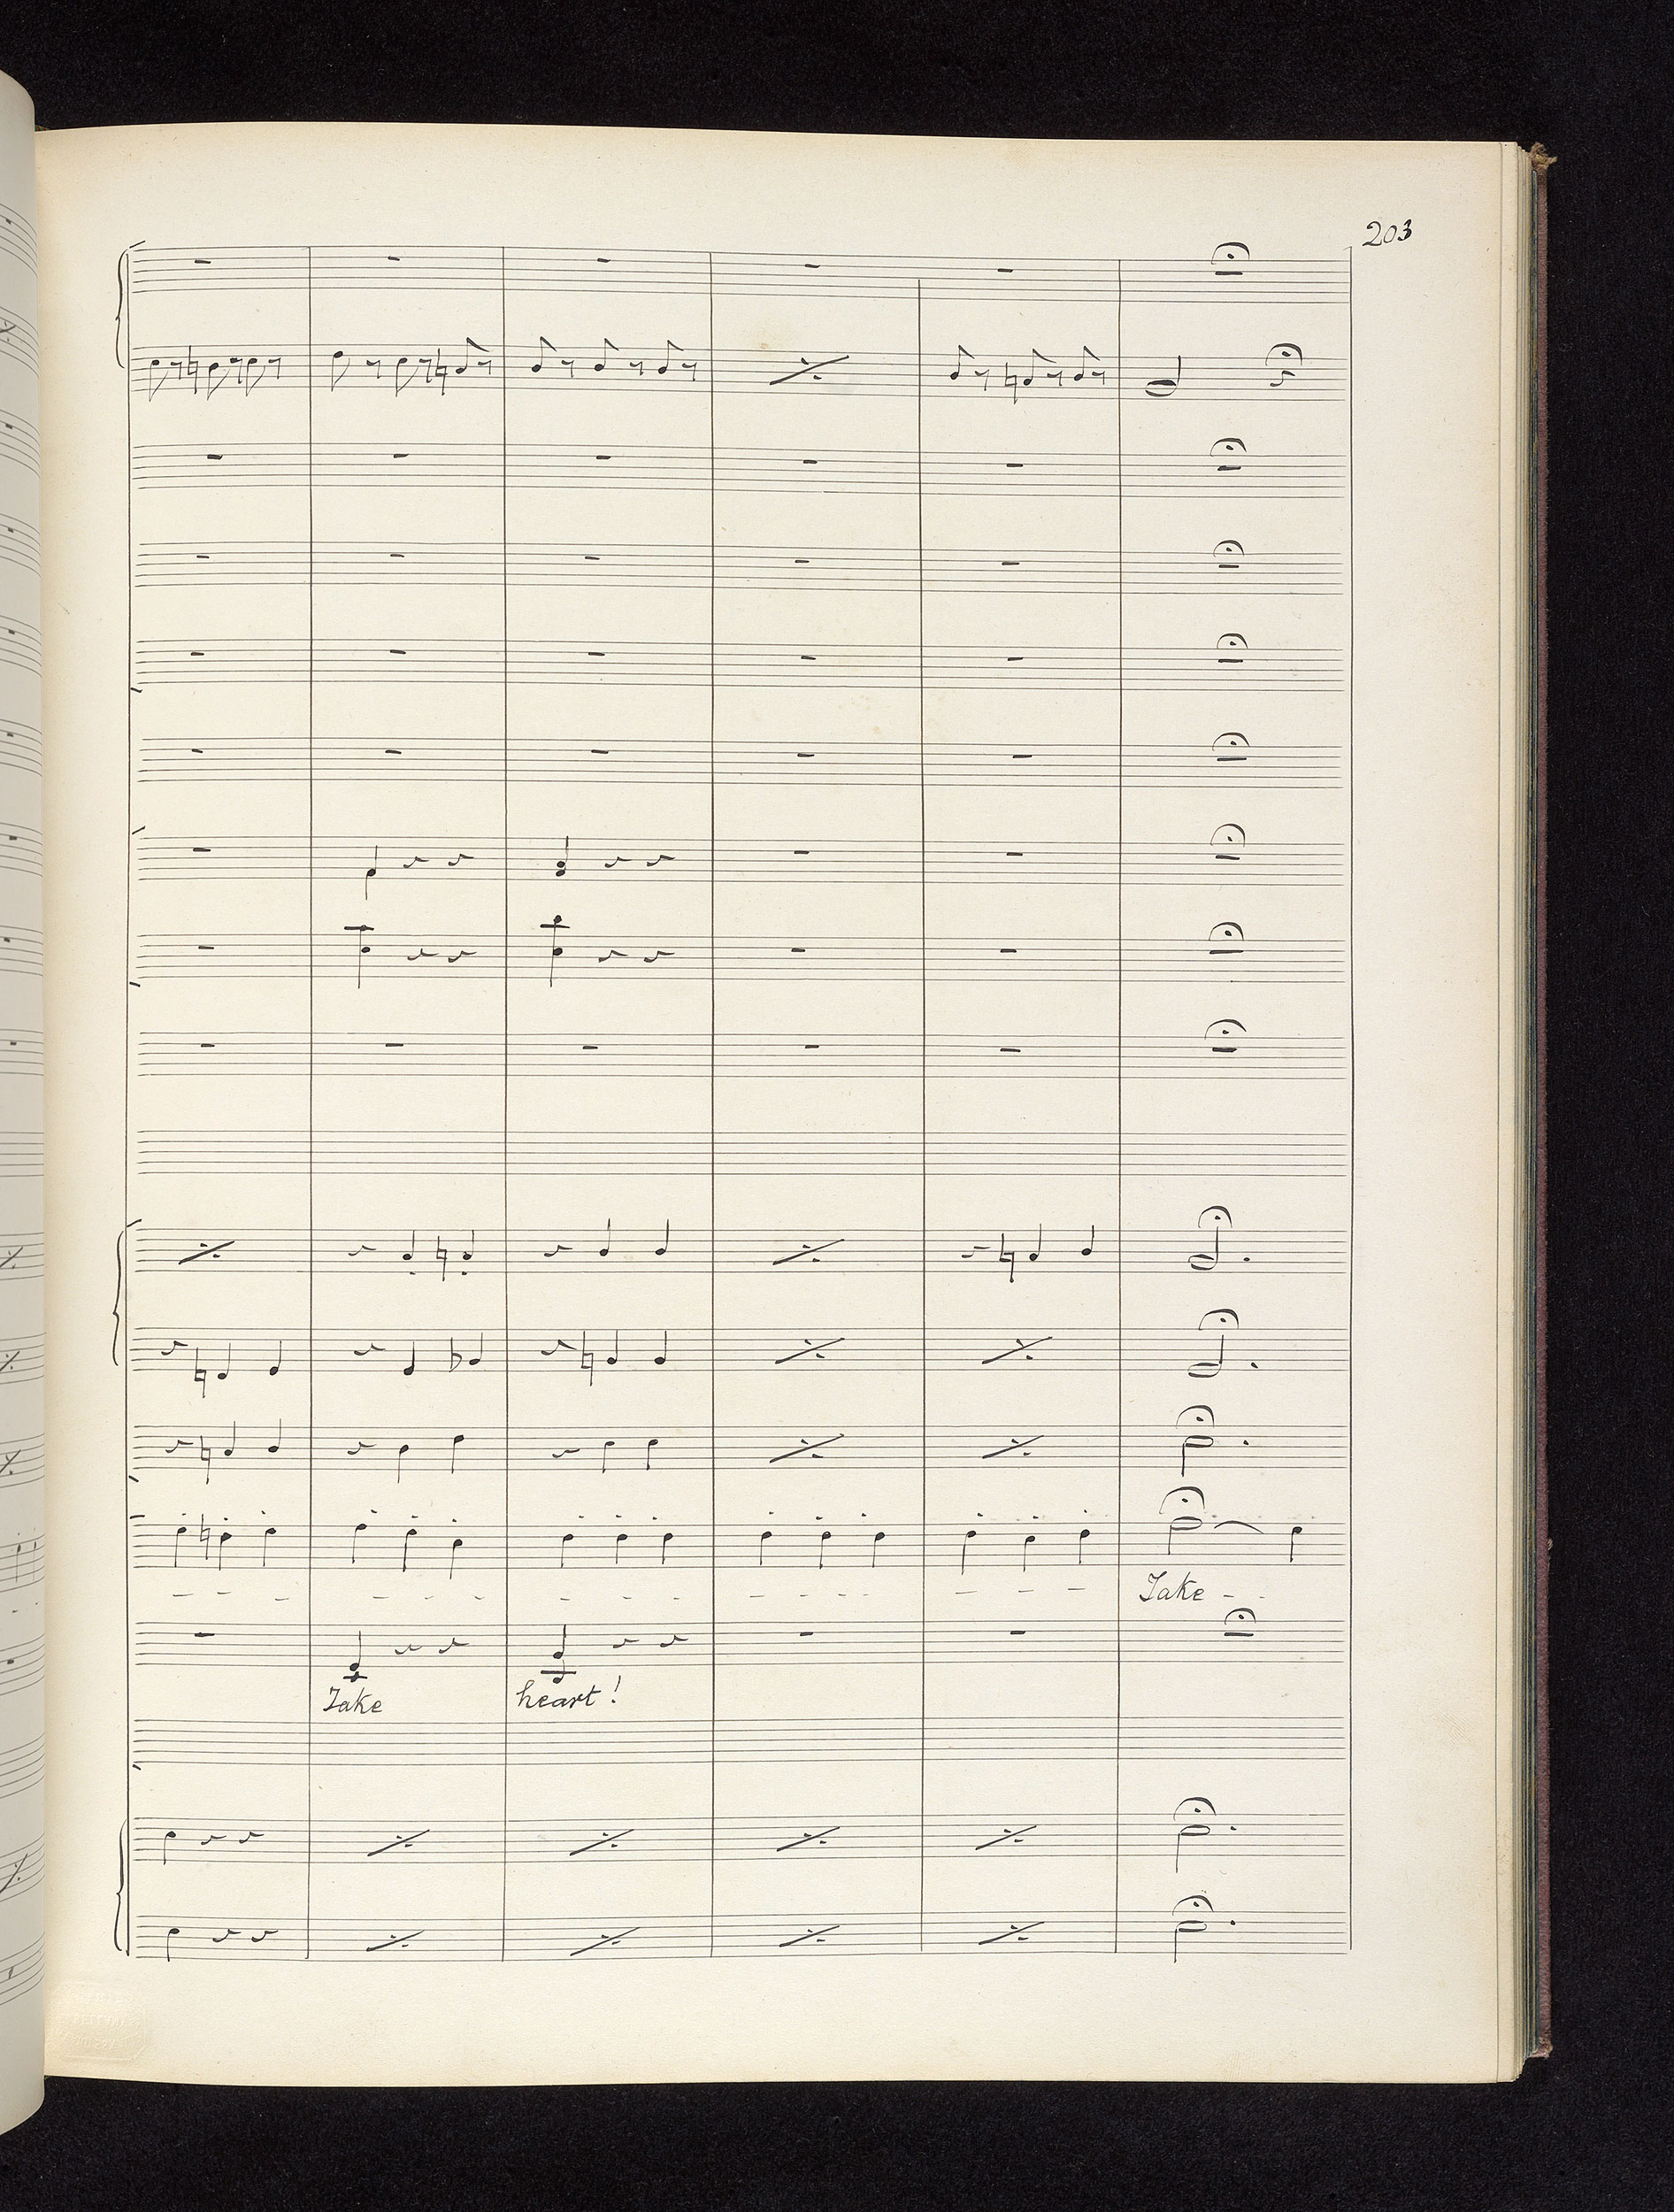 203
Take - -
Take heart!